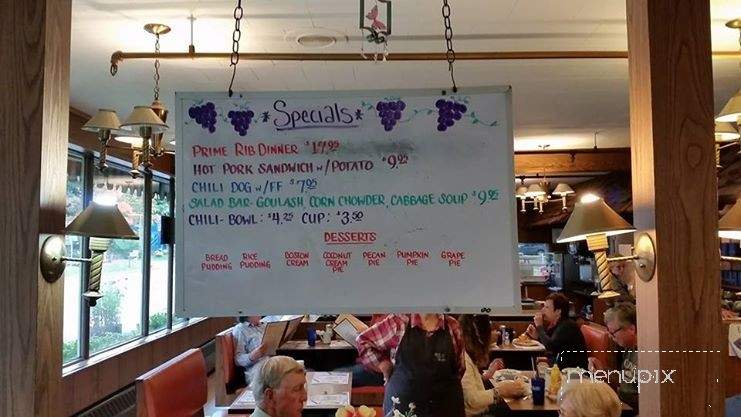 *Specials*
PRIME RIB DINNER $17.95
HOT PORK SANDWICH w/POTATO $9.95
CHILI DOG w/FF $7.95
SALAD BAR- GOULASH, CORN CHOWDER, CABBAGE SOUP $9.95
CHILI- BOWL: $4.25 CUP: $3.50
DESSERTS
BREAD PUDDING RICE PUDDING BOSTON CREAM COCONUT CREAM PIE PECAN PIE PUMPKIN PIE GRAPE PIE
menupix